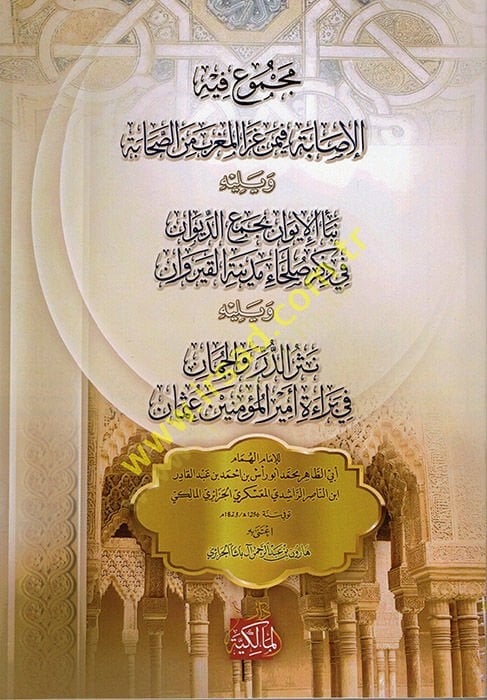 مجموع فيه
الإصابة فيمن غزا المغرب من الصحابة
ويليه
نبأ الإيوان بجمع الديوان
في ذكر صلحاء مدينة القيروان
ويليه
نثر الدر والجمان
في براءة أمير المؤمنين عثمان
للإمام الهمام
أبي الطاهر محمد أبو رأس بن أحمد بن عبد القادر
ابن الناصر الراشدي المعسكري الجزائري المالكي
توفي سنة
اعتنى به
هارون بن عبد الرحمن آل باشا الجزائري
دار
المالكية